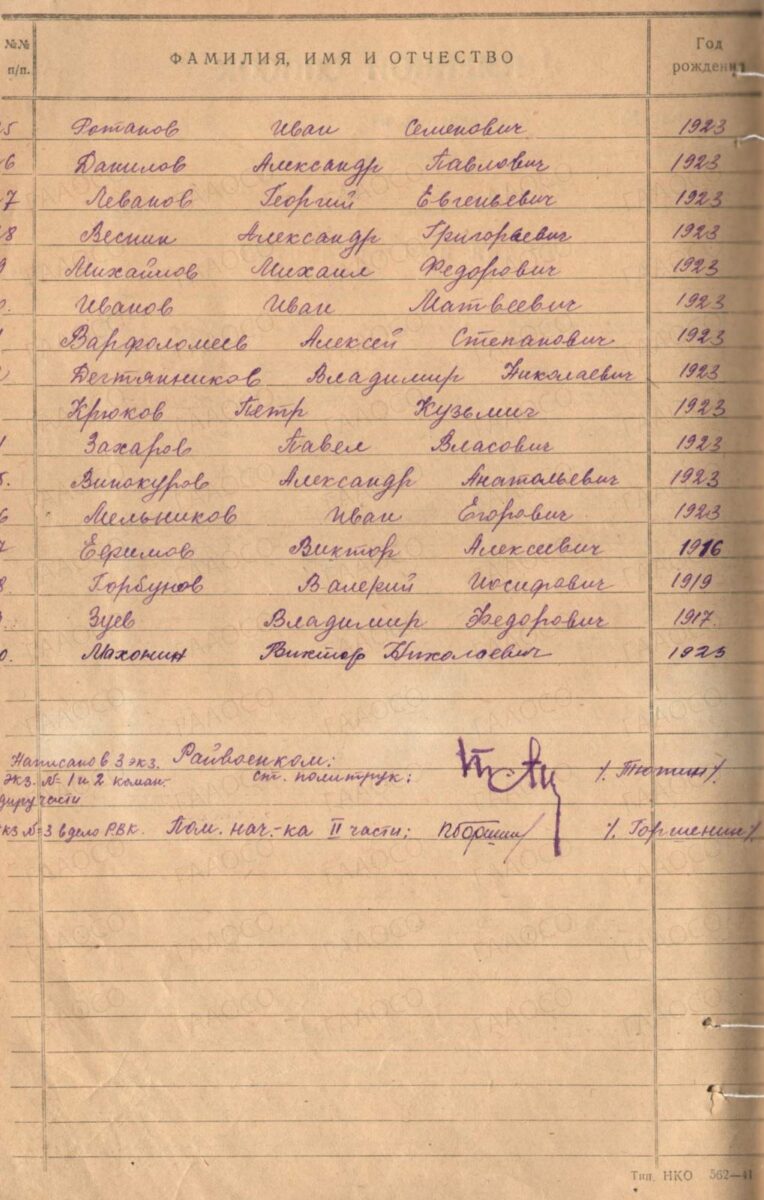 №№ п/п. ФАМИЛИЯ, ИМЯ И ОТЧЕСТВО Год рождени
5 Фотанов Иван Семенович 1923
6 Данилов Александр Павлович 1923
7 Леванов Георгий Евгеньевич 1923
8 Веснин Александр Григорьевич 1923
9 Михайлов Михаил Федорович 1923
0. Иванов Иван Матвеевич 1923
Варфоломеев Алексей Степанович 1923
Дегтянников Владимир Николаевич 1923
Крюков Петр Кузьмич 1923
Захаров Павел Власович 1923
5. Винокуров Александр Анатольевич 1923
6 Мельников Иван Егорович 1923
7 Ефимов Виктор Алексеевич 1916
8 Горбунов Валерий Иосифович 1919
Зуев Владимир Федорович 1917.
0. Махонин Виктор Николаевич 1923
Написано в 3 экз. Райвоенком:
экз. № 1 и 2 коман- ст. политрук: /. Тютин /.
диру части
кз № 3 в дело РВК. Пом. нач.-ка II части: /. Горшенин /.
ГААОСО
Тип. НКО 562—41